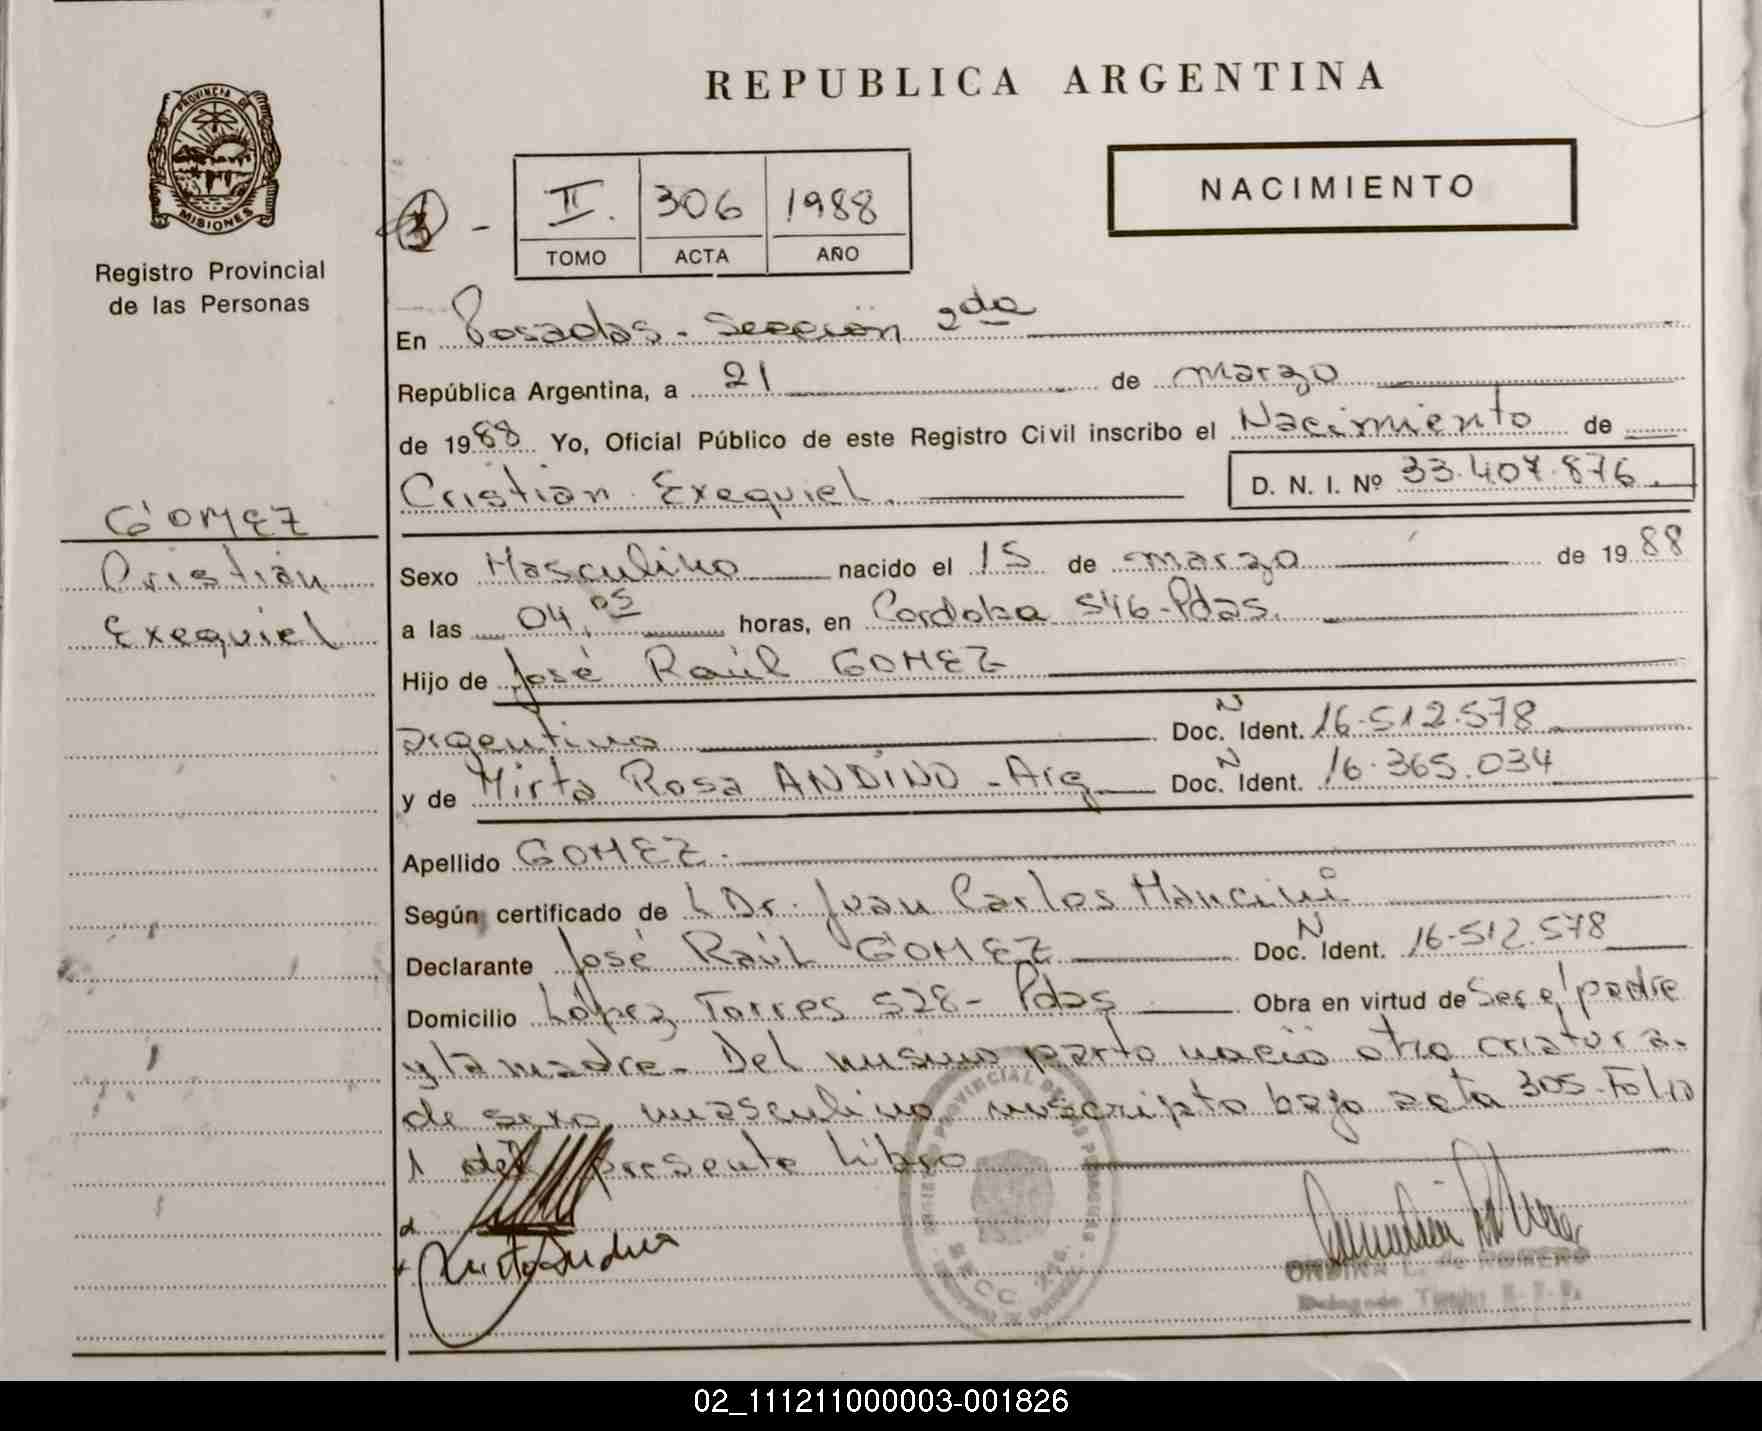 REPUBLICA ARGENTINA
PROVINCIA DE
MISIONES
Registro Provincial
de las Personas
II. 306 1988
TOMO ACTA AÑO
NACIMIENTO
En Posadas - Sección 2da
República Argentina, a 21 de marzo
de 1988 Yo, Oficial Público de este Registro Civil inscribo el Nacimiento de
Cristian Exequiel. D. N. I. Nº 33.407.876.
GOMEZ
Cristian
Exequiel
Sexo Masculino nacido el 15 de marzo de 1988
a las 04,05 horas, en Cordoba 546-Pdas.
Hijo de José Raúl GOMEZ
argentino Doc. N Ident. 16.512.578
y de Mirta Rosa ANDINO - Arg Doc. N Ident. 16.365.034
Apellido GOMEZ.
Según certificado de Dr. Juan Carlos Mancini
Declarante José Raúl GOMEZ Doc. N Ident. 16.512.578
Domicilio López Torres 528- Pdas Obra en virtud de Ser el padre
y la madre. Del mismo parto nació otra criatura
de sexo masculino, inscripto bajo acta 305-Folio
1 del presente libro
ONDINA L. de ROMERO
02_111211000003-001826